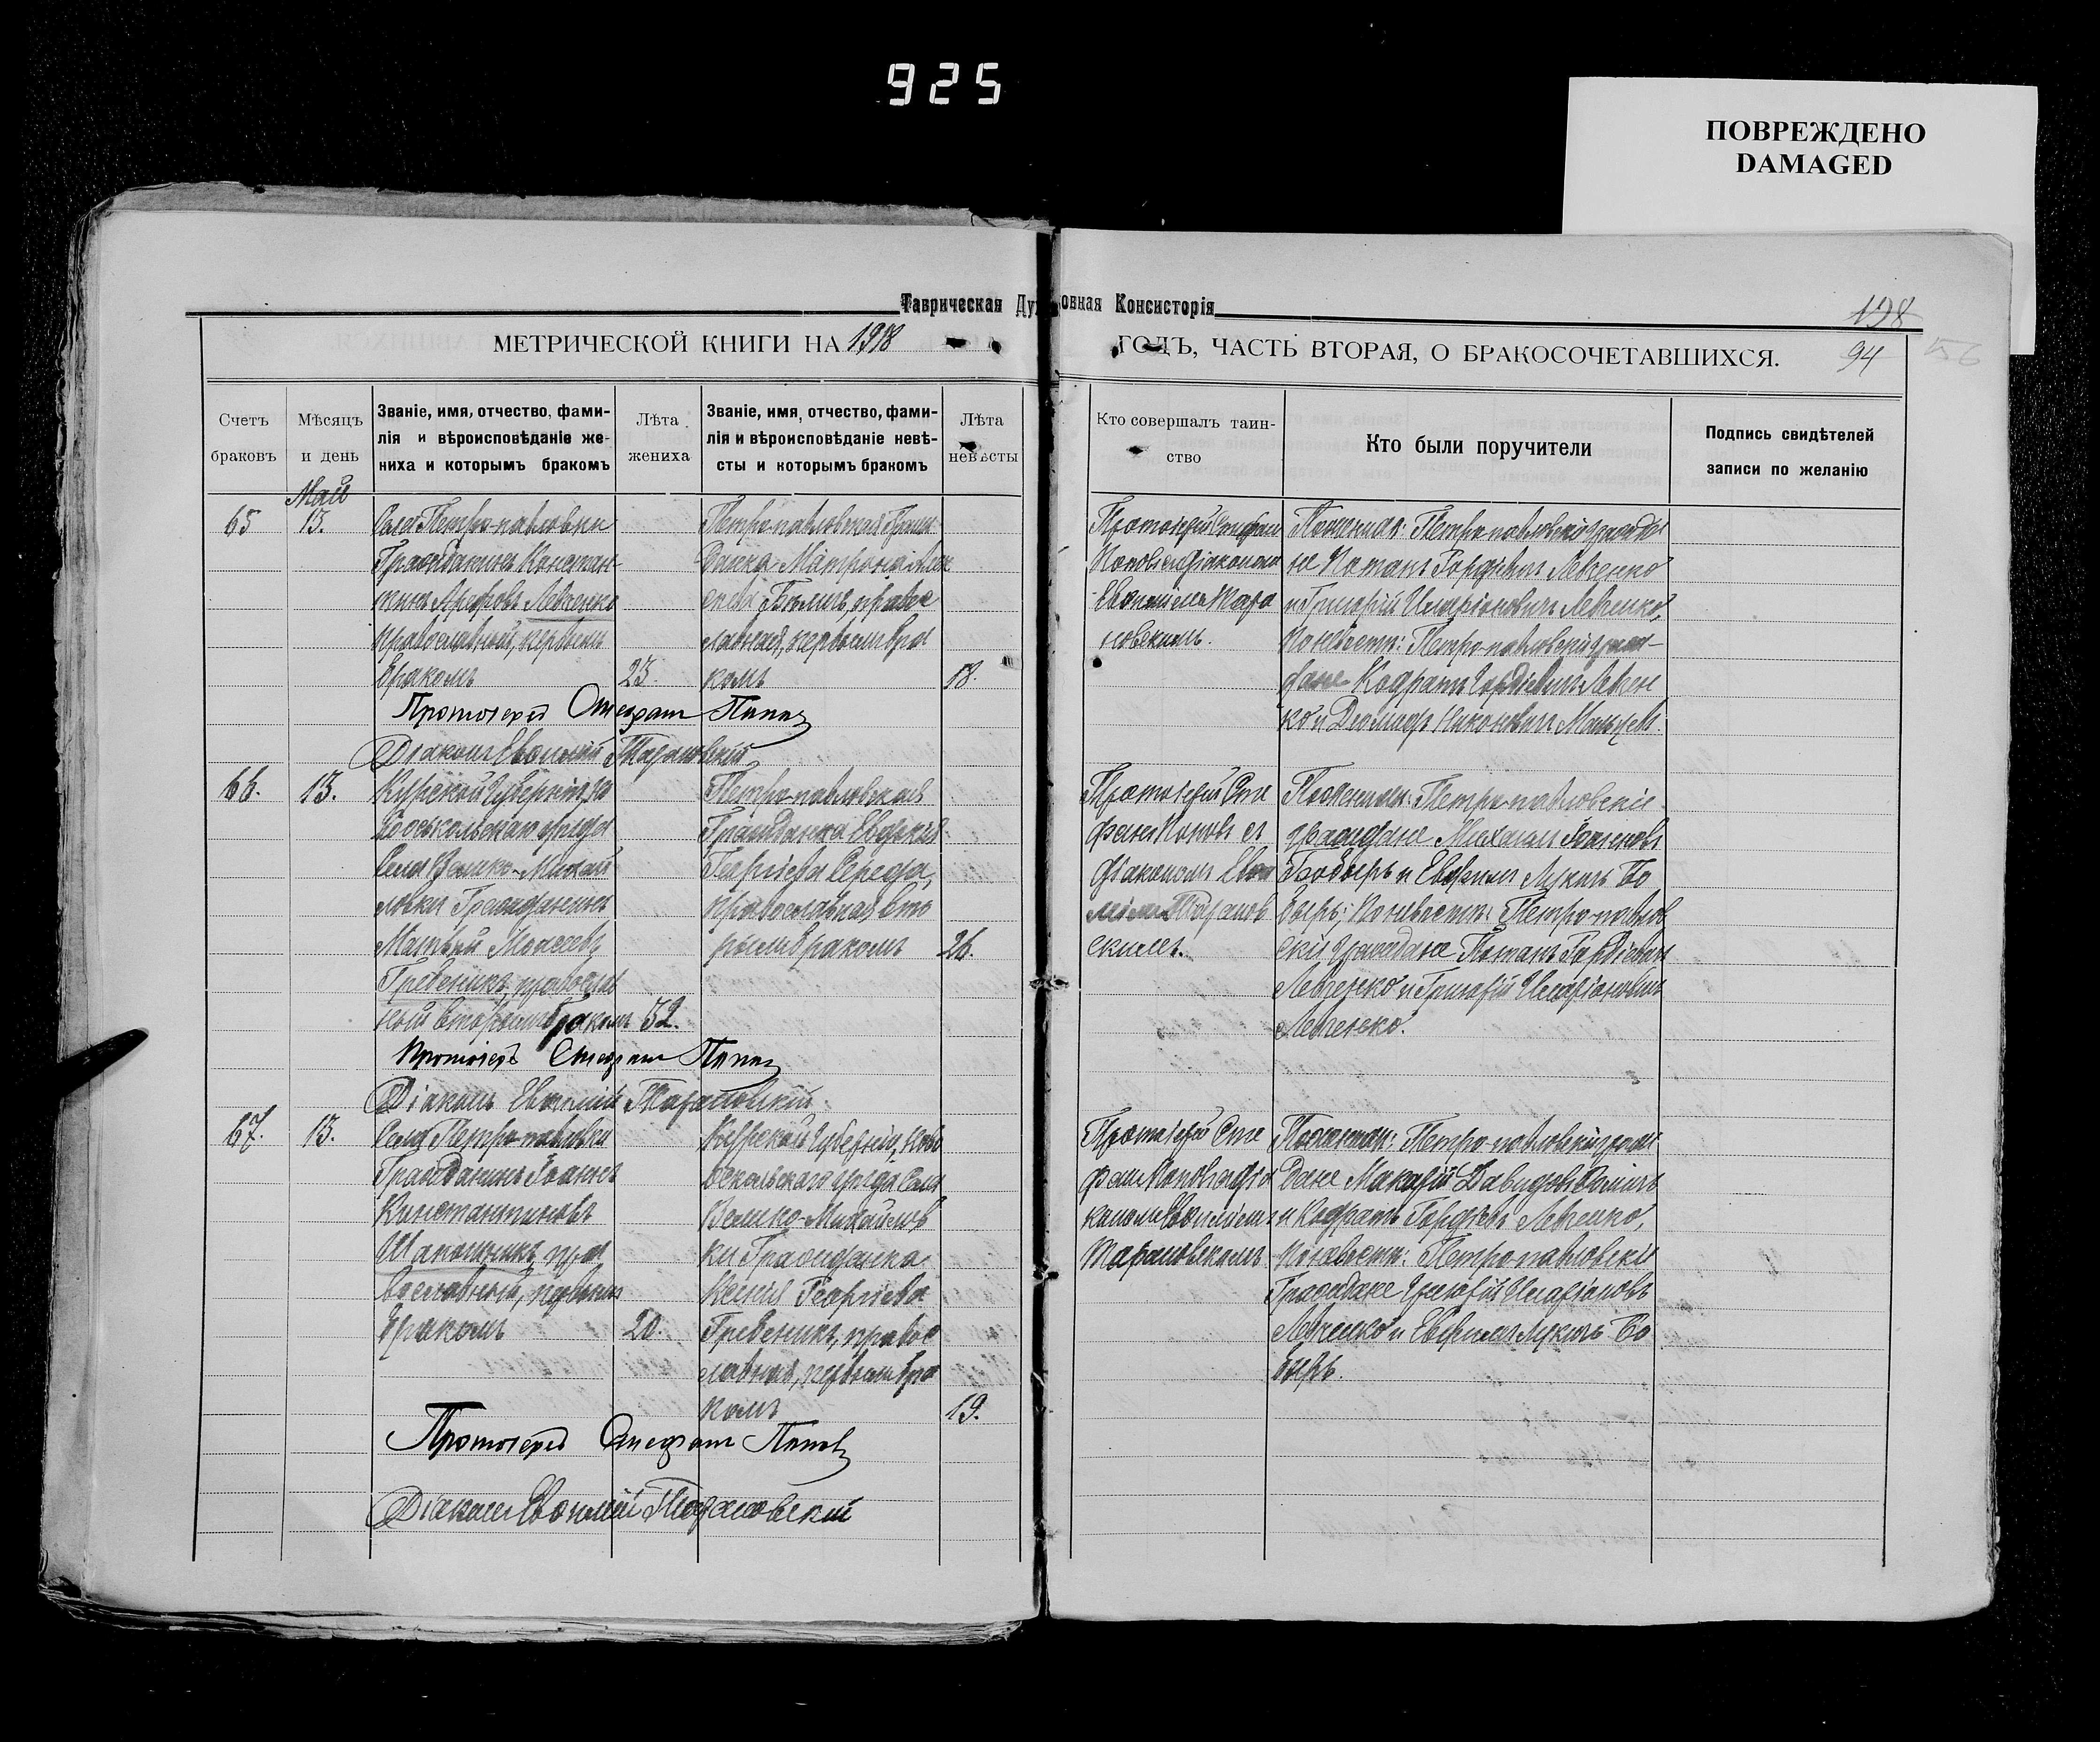 925
ПОВРЕЖДЕНО
DAMAGED
Таврическая Духовная Консисторія
198
МЕТРИЧЕСКОЙ КНИГИ НА 1918 ГОДЪ, ЧАСТЬ ВТОРАЯ, О БРАКОСОЧЕТАВШИХСЯ.
94
156
Счетъ
браковъ
Мѣсяцъ
и день
Званіе, имя, отчество, фами-
лія и вѣроисповѣданіе же-
ниха и которымъ бракомъ
Лѣта
жениха
Званіе, имя, отчество, фами-
лія и вѣроисповѣданіе невѣ-
сты и которымъ бракомъ
Лѣта
невѣсты
Кто совершалъ таин-
ство
Кто были поручители
Подпись свидѣтелей
записи по желанію
Май
65
13.
Села Петро-павловки
Гражданинъ Констан
тинъ Левченко
православный, первымъ
бракомъ
23.
Петро-павловская Граж
данка Матрона Алек
правос
лавная, первымъ бра
комъ
18.
Протоіерей Стефанъ
Поповъ съ діакономъ
Евѳиміемъ Тара
новскимъ.
По женихѣ: Петро-павловскіе гражда
не Потапъ Гордѣевъ Левченко
и Григорій Иларіоновичъ Левченко,
По невѣстѣ: Петро-павловскіе граж-
дане Кодратъ Гордіевичъ Левчен
ко и Никоновичъ
Протоіерей Стефанъ Поповъ
Діаконъ Евѳимій Тарановскій
66.
13.
Курской Губерніи, Но
вооскольскаго уѣзда
Села Велико-Михай
ловки Гражданинъ
Матвѣй Моисеевъ
Гребеникъ, православ
ный вторымъ бракомъ
32.
Петро-павловская
Гражданка Евдокія
Георгіева Середа,
православная, вто
рымъ бракомъ
26.
Протоіерей Сте
фанъ Поповъ съ
діакономъ Евѳи
міемъ Таранов
скимъ.
По женихѣ: Петро-павловскіе
граждане Михаилъ Іоанновъ
Бобырь и Евфимъ Лукичъ Бо
бырь; По невѣстѣ: Петро-павлов
скіе Граждане Потапъ Гордіевичъ
Левченко и Григорій Иларіоновичъ
Левченко.
Протоіерей Стефанъ Поповъ
Діаконъ Евѳимій Тарановскій.
67.
13.
Села Петро-павловки
Гражданинъ Іоаннъ
Константиновъ
Шапошникъ, пра
вославный, первымъ
бракомъ
20.
Курской Губерніи, Ново
оскольскаго уѣзда Села
Велико-Михайлов
ки Гражданка
Ксенія Георгіева
Гребеникъ, правос
лавная, первымъ бра
комъ
19.
Протоіерей Сте
фанъ Поповъ съ діа
кономъ Евѳиміемъ
Тарановскимъ
По женихѣ: Петро-павловскіе граж
дане Макарій Давидовъ
и Кодратъ Гордѣевъ Левченко,
По невѣстѣ: Петро-павловскіе
Граждане Григорій Иларіоновъ
Левченко и Евфимъ Лукичъ Бо
бырь.
Протоіерей Стефанъ Поповъ
Діаконъ Евѳимій Тарановскій